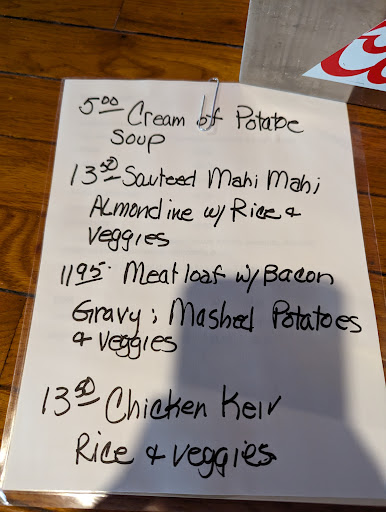 5.00 Cream of Potatoe
Soup
13.50 Sauteed Mahi Mahi
Almondine w/ Rice &
Veggies
11.95 Meatloaf w/ Bacon
Gravy; Mashed Potatoes
& Veggies
13.50 Chicken Keiv
Rice & Veggies